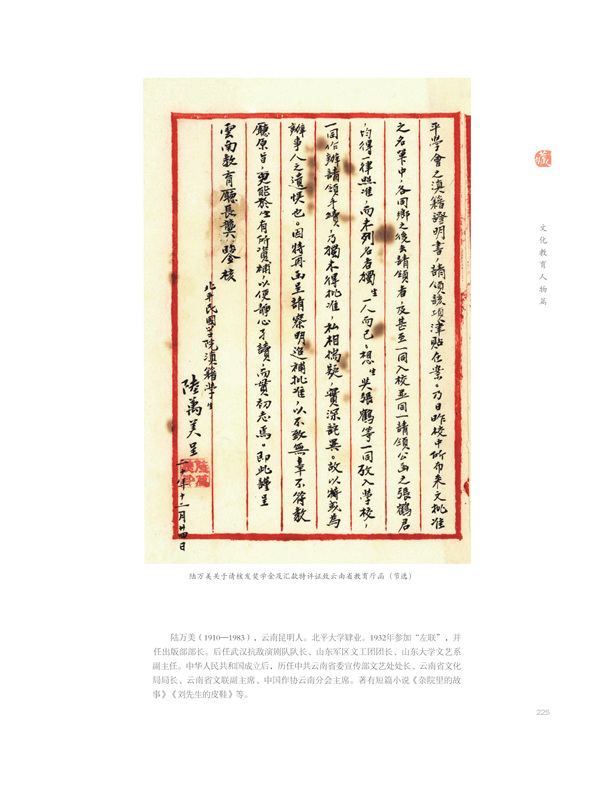 平學會之滇籍證明書，請領該項津貼在案。乃日昨校中所布来文批准
之名單中，各同鄉之後去請領者，及甚至一同入校並同一請領公函之張鶴君
均得一律照准，而未列名者獨生一人而已。想生與張鶴等一同攷入學校，
一同伧辦請領手續，乃獨未得批准，私相惴疑，實深詫異。故以特或為
辦事人之遺悞也。因特再函呈請察明迢補批准，以不致無辜不符教
廳原旨，更能於生有所資補，以便靜心才讀，而貫初志焉。即此謹呈
雲南教育廳長龔 鑒核
北平民國學院滇籍學生
陸萬美呈
二十年十二月廿四日
藏
文化教育人物篇
陆万美关于请核发奖学金及汇款特许证致云南省教育厅函（节选）
陆万美（1910—1983），云南昆明人。北平大学肄业。1932年参加“左联”，并
任出版部部长。后任武汉抗敌演剧队队长、山东军区文工团团长、山东大学文艺系
副主任。中华人民共和国成立后，历任中共云南省委宣传部文艺处处长、云南省文化
局局长、云南省文联副主席、中国作协云南分会主席。著有短篇小说《杂院里的故
事》《刘先生的皮鞋》等。
225